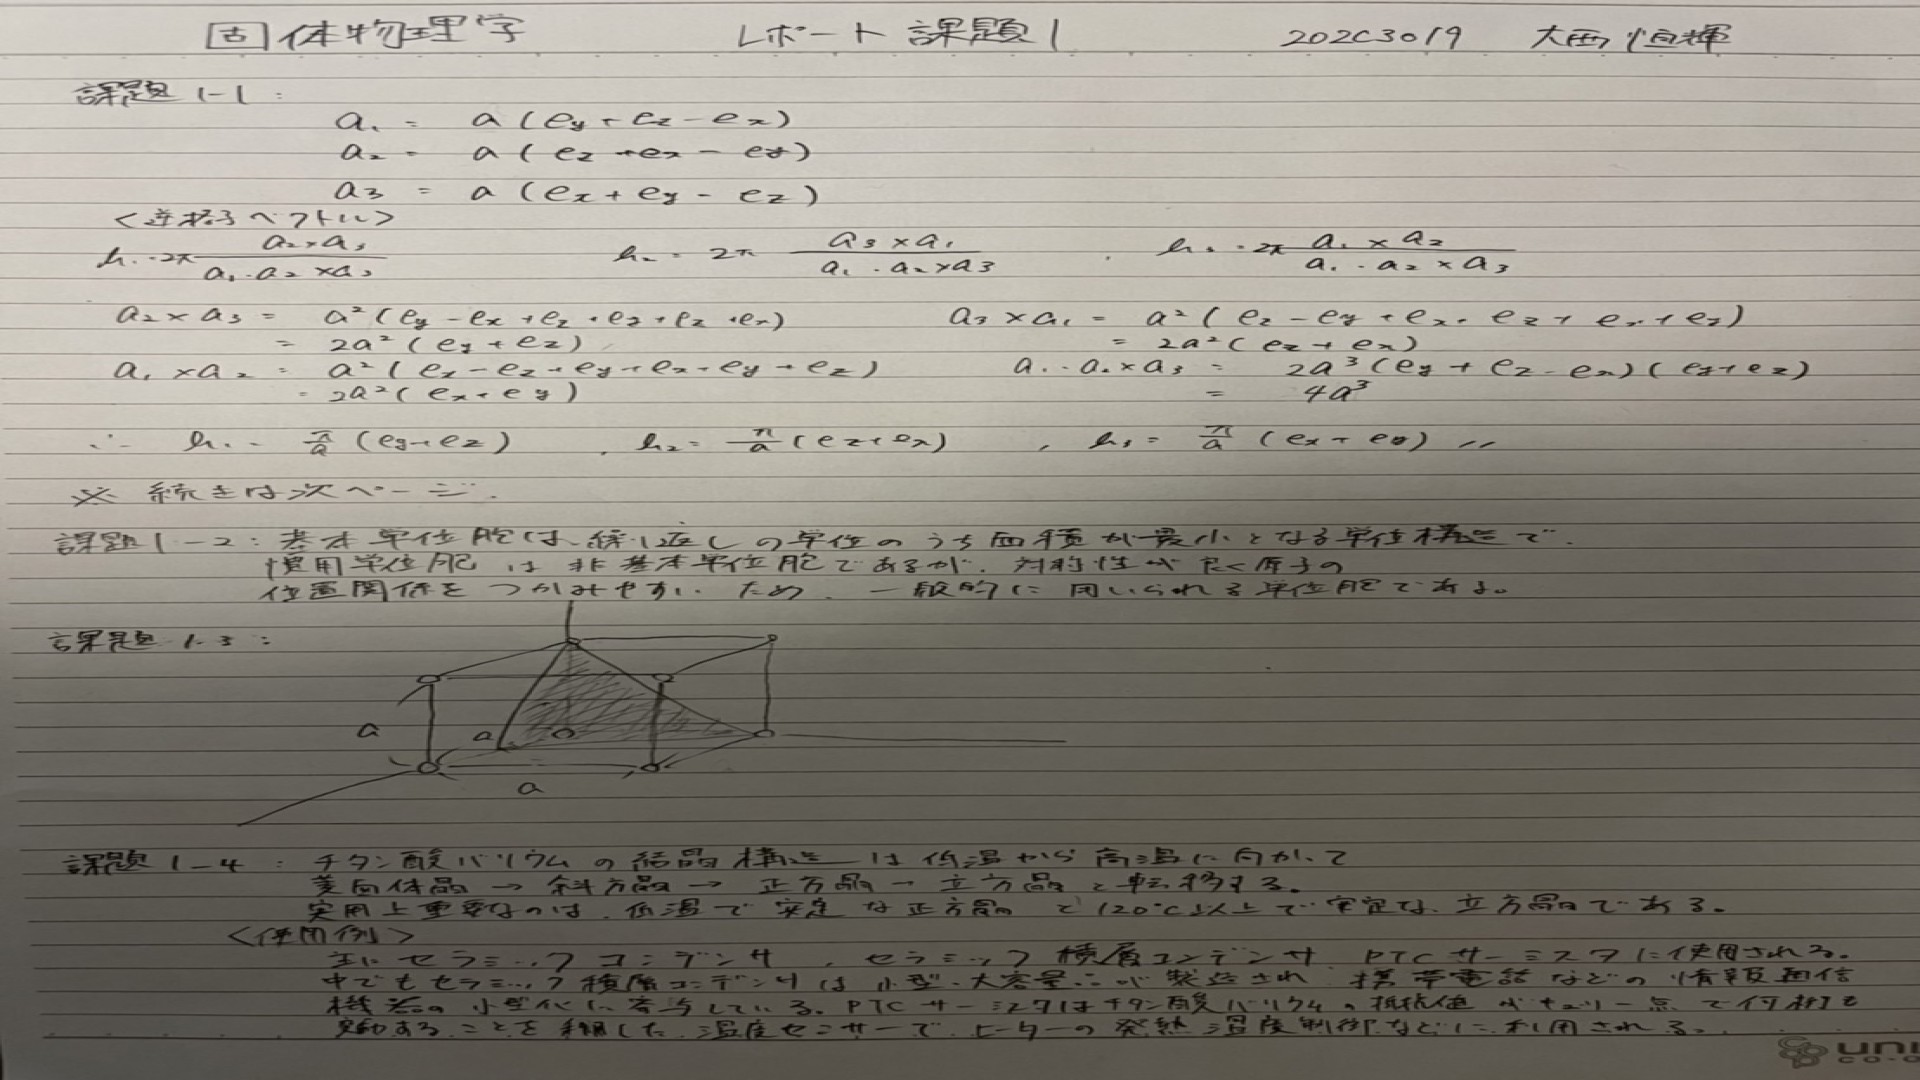 固体物理学 レポート課題1 202C3019 大西恒輝
課題1-1:
a₁ = a(ey+ez-ex)
a₂ = a(ez+ex-ey)
a₃ = a(ex+ey-ez)
<逆格子ベクトル>
h₁=2π a₂×a₃/a₁・a₂×a₃ h₂=2π a₃×a₁/a₁・a₂×a₃ , h₃=2π a₁×a₂/a₁・a₂×a₃
a₂×a₃ = a²(ey-ex+ez+ey+ez+ex) a₃×a₁ = a²(ez-ey+ex+ez+ex+ey)
= 2a²(ey+ez) = 2a²(ez+ex)
a₁×a₂ = a²(ex-ez+ey+ex+ey+ez) a₁・a₂×a₃ = 2a³(ey+ez-ex)(ey+ez)
= 2a²(ex+ey) = 4a³
∴ h₁=π/a(ey+ez) , h₂=π/a(ez+ex) , h₃=π/a(ex+ey)
※ 続きは次ページ.
課題1-2:基本単位胞は、繰り返しの単位のうち面積が最小となる単位構造で、
慣用単位胞は非基本単位胞であるが、対称性が良く原子の
位置関係をつかみやすいため、一般的に用いられる単位胞である。
課題1-3:
a
a
a
課題1-4:チタン酸バリウムの結晶構造は低温から高温に向かって
菱面体晶→斜方晶→正方晶→立方晶と転移する。
実用上重要なのは、低温で安定な正方晶と120℃以上で安定な立方晶である。
<使用例>
主にセラミックコンデンサ、セラミック積層コンデンサ PTCサーミスタに使用される。
中でもセラミック積層コンデンサは小型・大容量 が製造され 携帯電話などの情報通信
機器の小型化に寄与している。PTCサーミスタはチタン酸バリウムの抵抗値がキュリー点で
することを利用した温度センサーで、ヒーターの発熱温度制御などに利用される。
UNI
CO-O